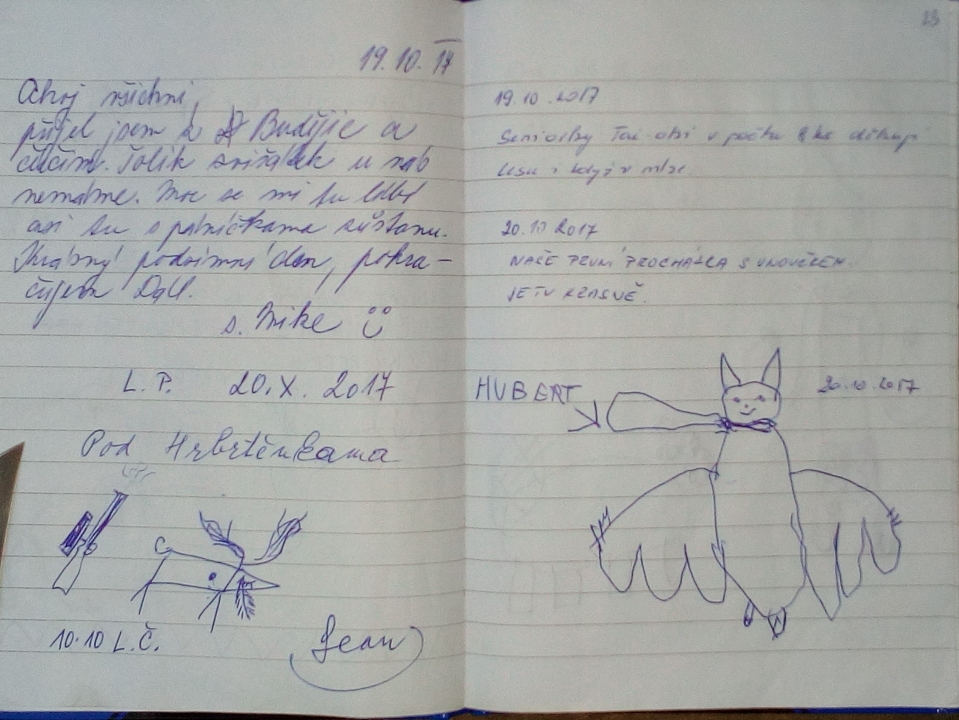 19.10.17
Ahoj všichni,
přijel jsem z Budějic a
čučím. Tolik svišťátek u nás
nemáme. Moc se mi tu líbí
asi tu s panička zůstanu.
Krásný podzimní den, pokra-
čujem Dall.
s. Mike
L.P. 20.X. 2017
Pod Hrbrténkama
10.10 L.Č.
Jean
13
19.10.2017
Seniorky v počtu děkují
lesu i když v mlze.
20.10 2017
NAŠE PRVNÍ PROCHÁZKA S VNOUČKEM.
JE TU KRÁSNĚ.
HUBERT
20.10.2017